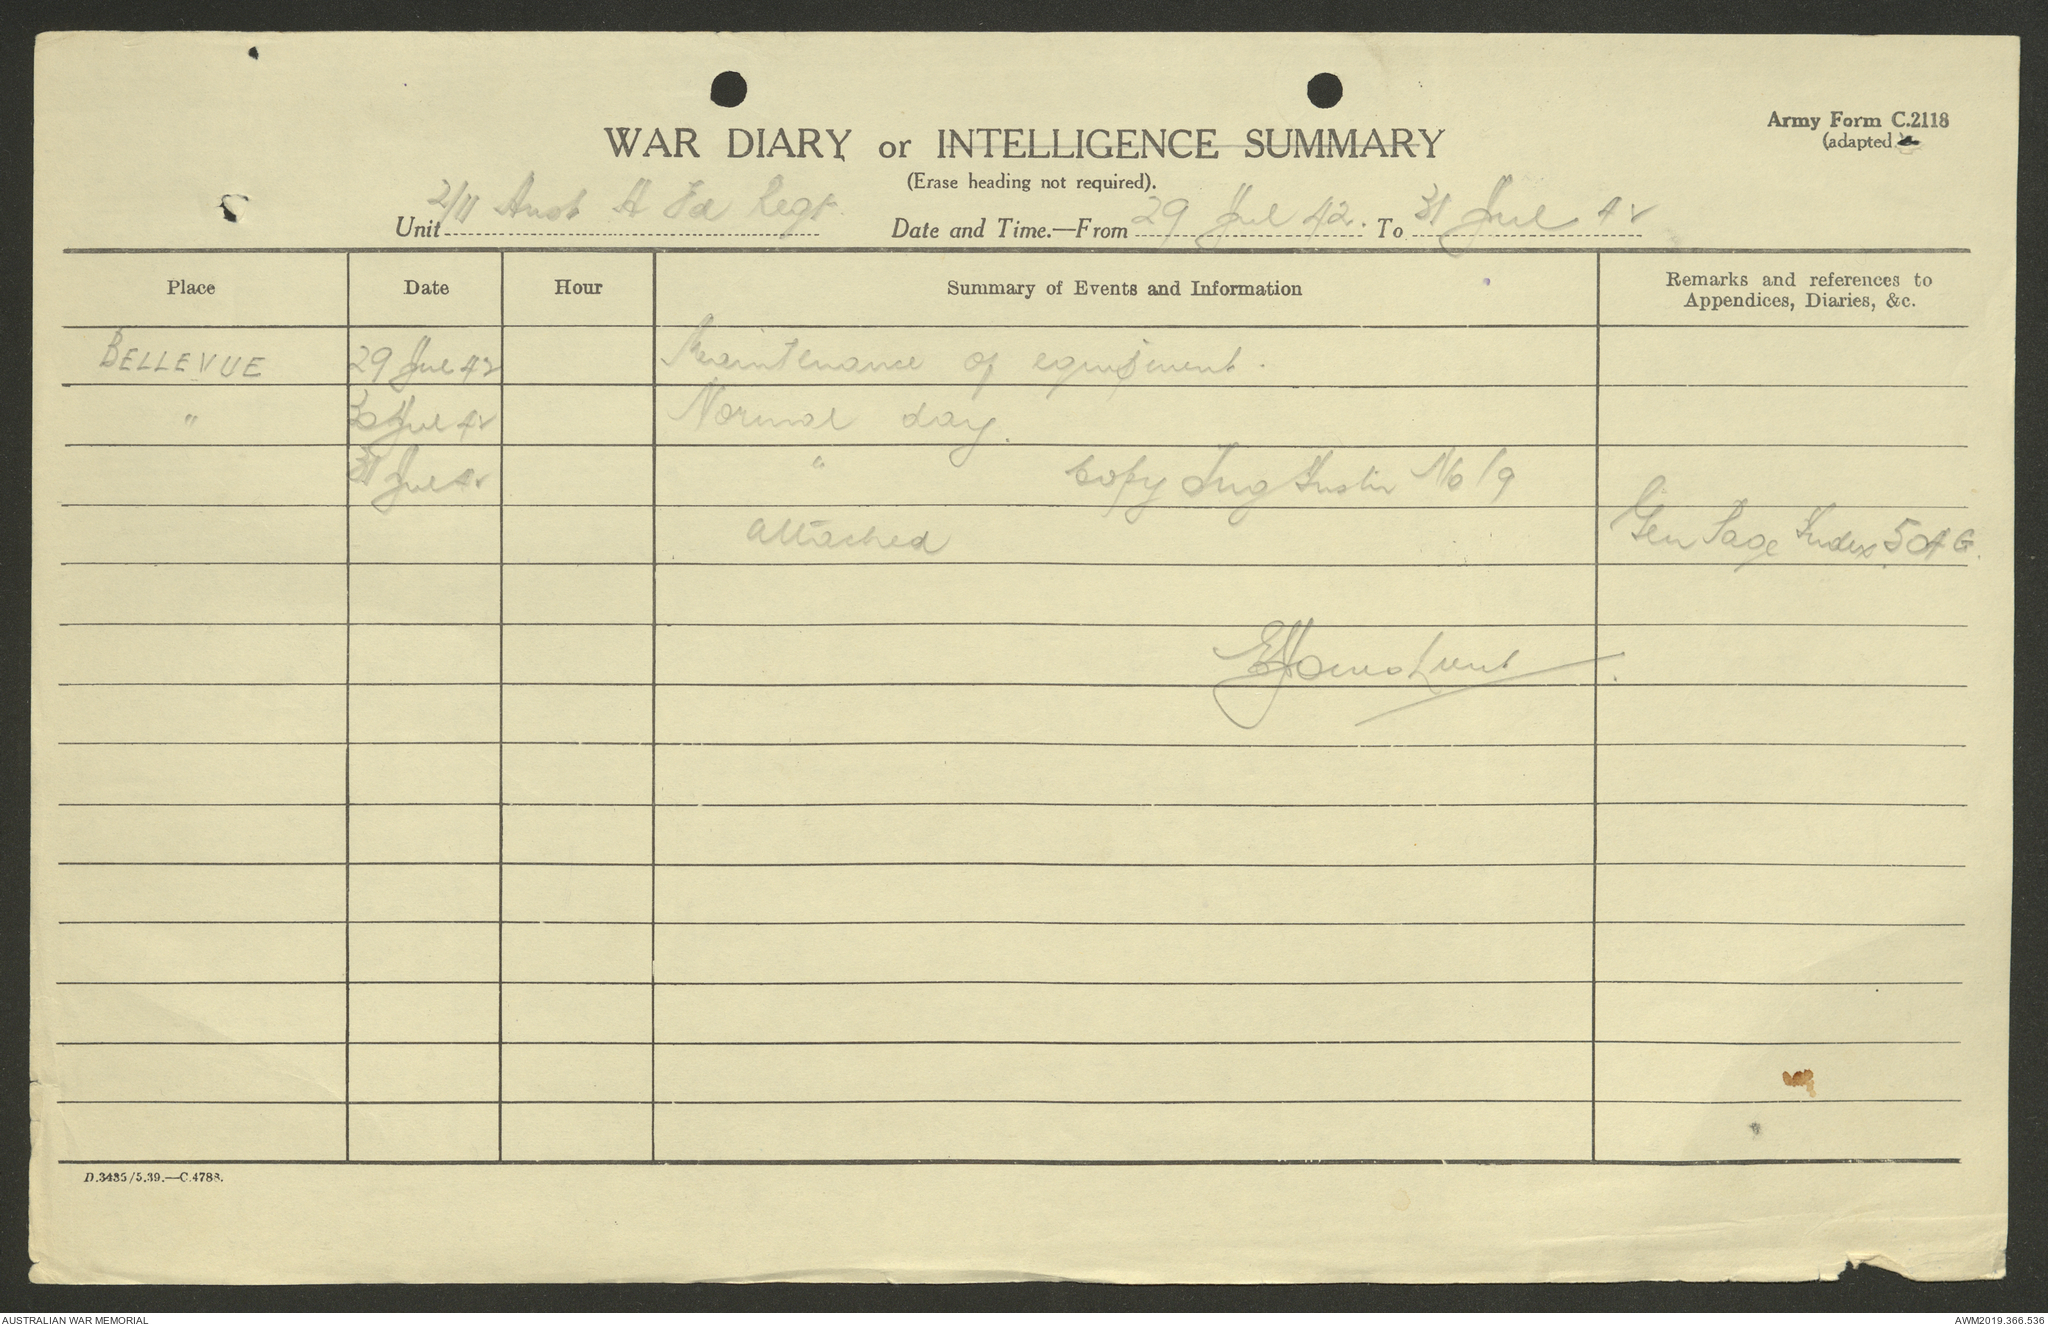 Army Form C.2118
(adapted
WAR DIARY or INTELLIGENCE SUMMARY
(Erase heading not required).
Unit 2/11 Aust A Fd Regt. Date and Time.—From 29 Jul 42. To 31 Jul 42
Place Date Hour Summary of Events and Information Remarks and references to
Appendices, Diaries, &c.
BELLEVUE 29 Jul 42 Maintenance of equipment.
" 30 Jul 42 Normal day.
31 Jul 42 " Copy Trg Instn No 19
attached Gen Page Index 5 of G.
D.3435/5.39.—C.4788.
AUSTRALIAN WAR MEMORIAL AWM2019.366.536